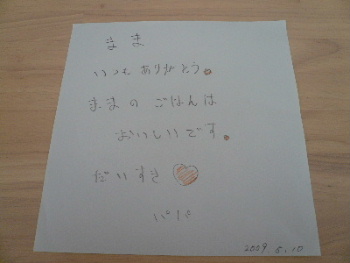 まま
いつも ありがとう。
ままの ごはんは
おいしいです。
だいすき
2009 5.10